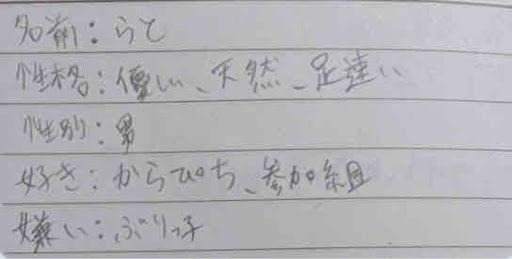 名前：らと
性格：優しい、天然、足速い
性別：男
好き：からぴち、参加組
嫌い：ぶりっ子